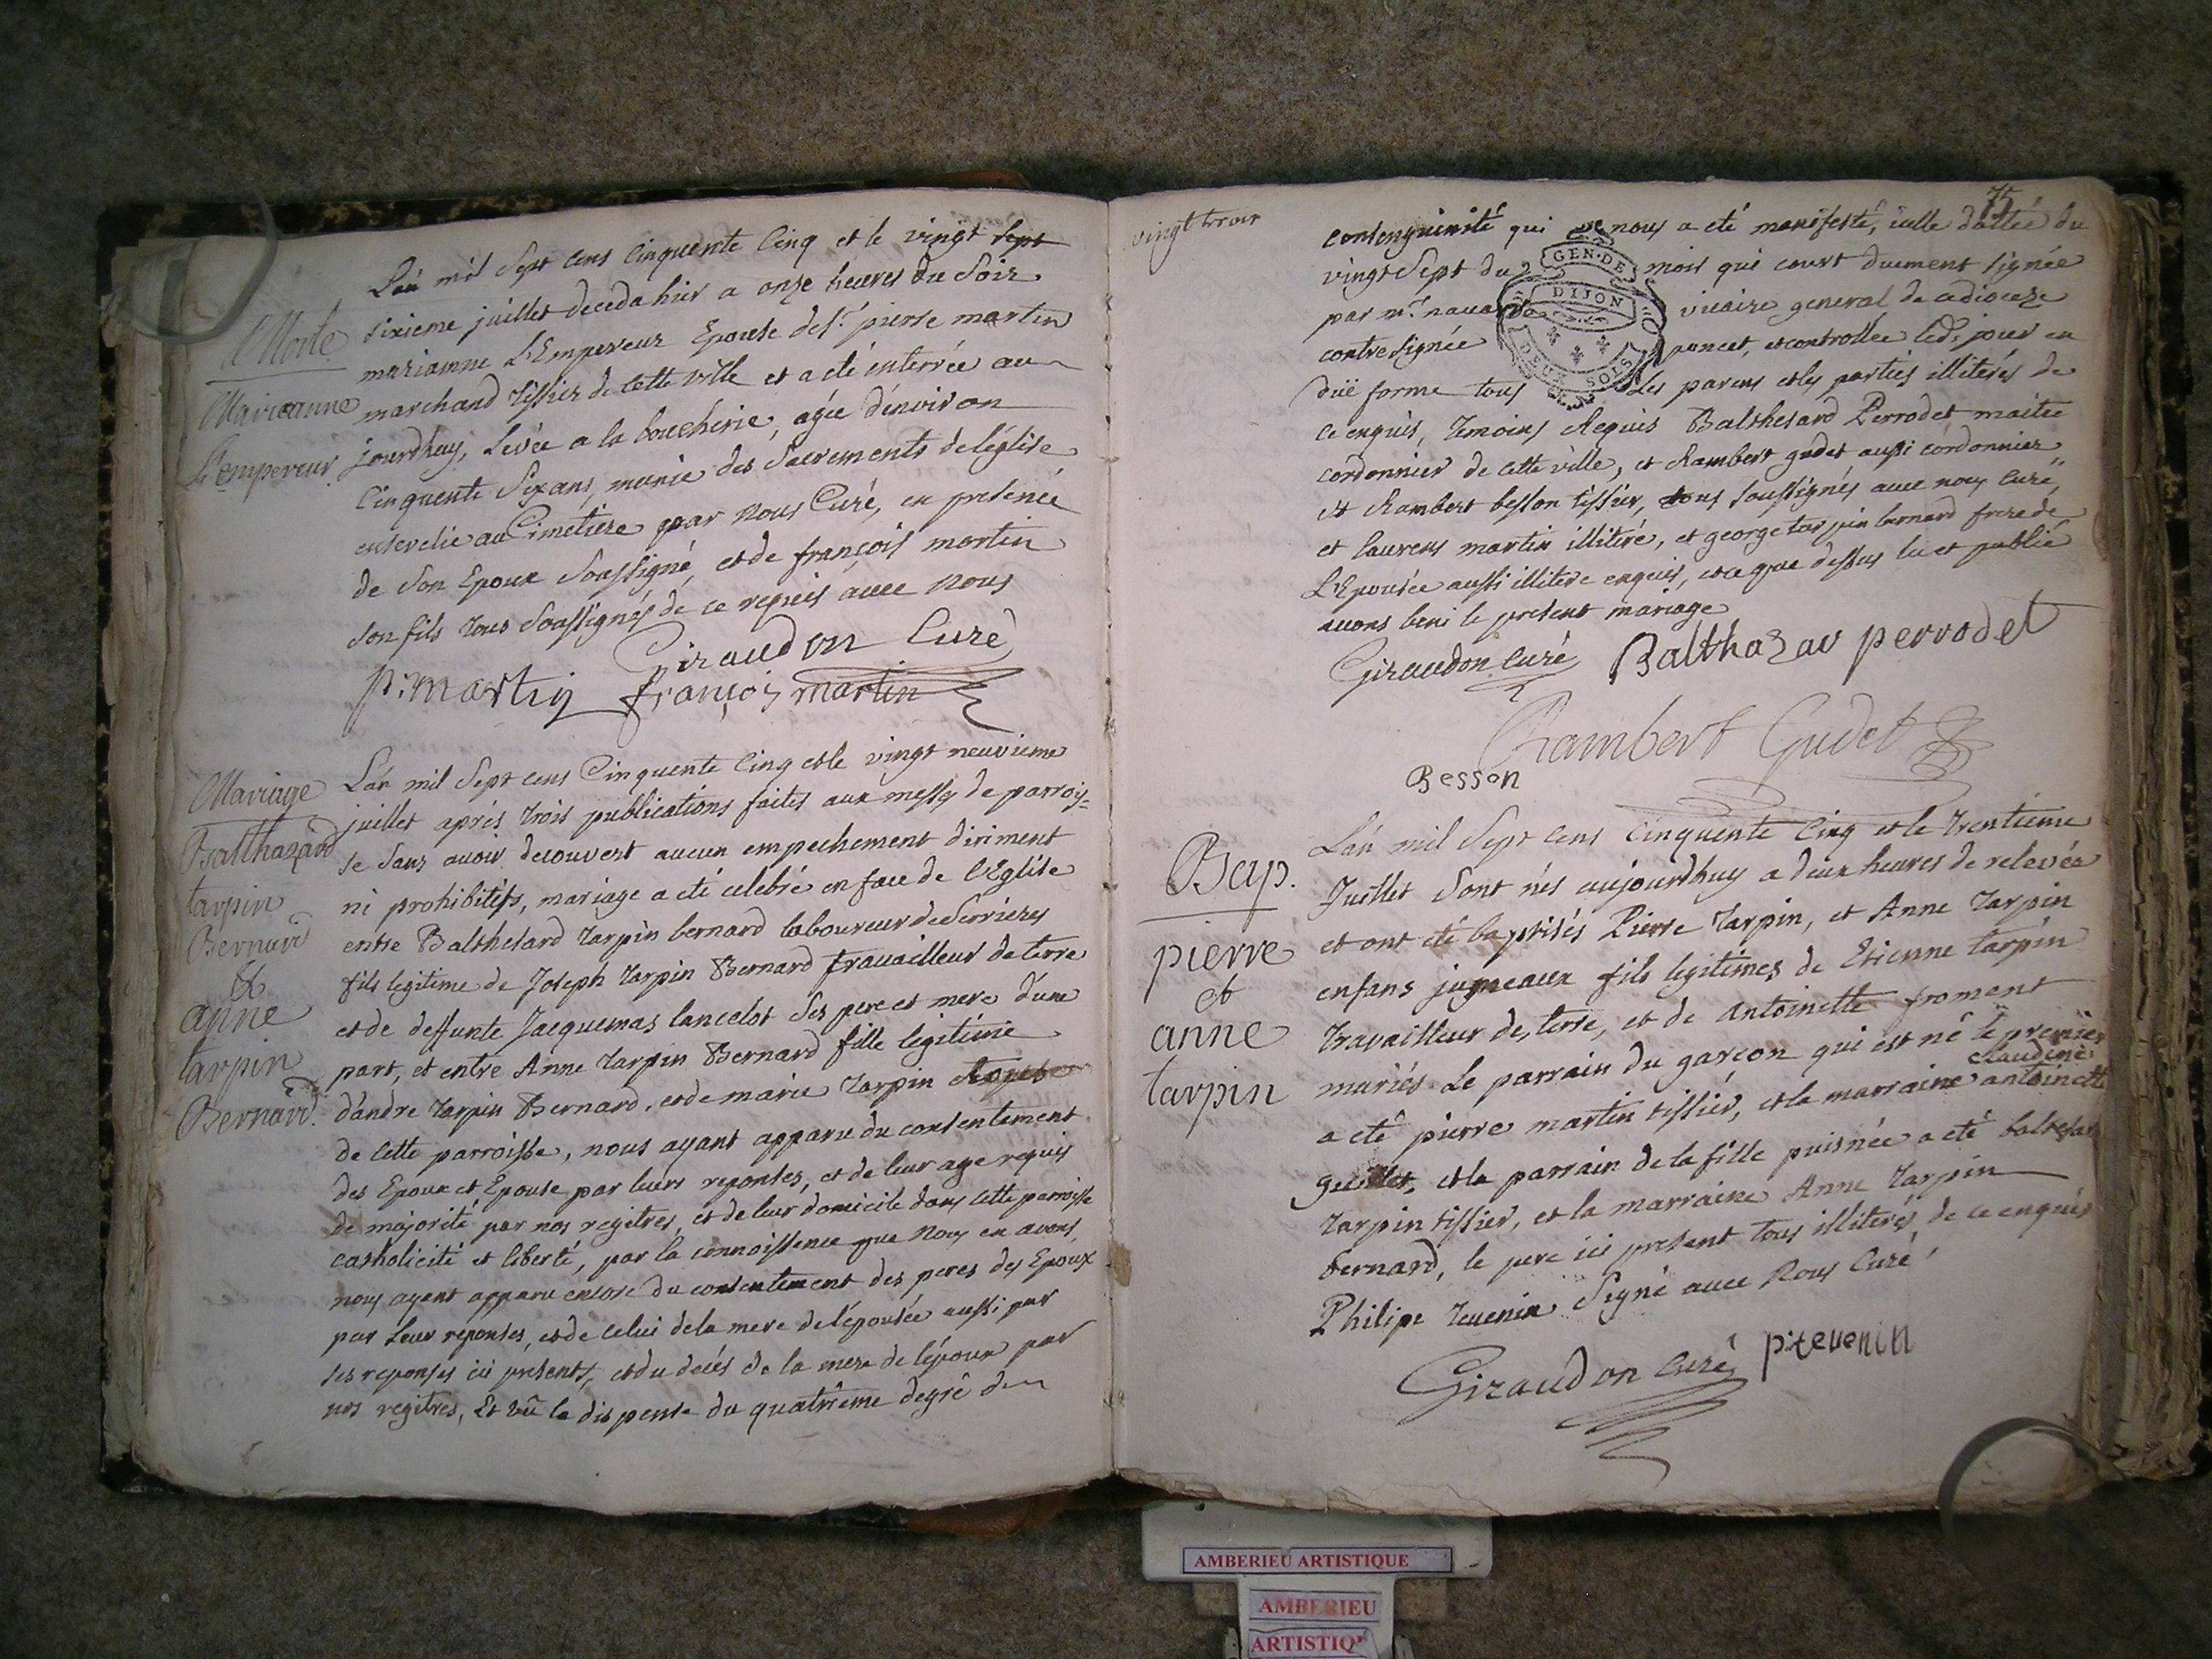 Morte
Marieanne
L'empereur
L'an mil Sept cens Cinquente Cinq et le vingt Sept
sixieme juillet deceda hier a onze heures du Soir
mariamne L'Empereur Epouse de sr. pierre martin
marchand tissier de Cette ville et a eté enterrée au
jourdhuy, Levée a la boucherie, agée d'environ
Cinquente Six ans, munie des Sacrements de léglise
ensevelie au Cimetiere par nous Curé, en presence
de Son Epoux Soussigné, et de françois martin
son fils tous Soussignés de ce requis avec nous
Giraudon Curé
p: martin françois martin
Mariage
Balthazard
tarpin
Bernard
&
anne
tarpin
Bernard.
L'an mil Sept cens Cinquente Cinq et le vingt neuvieme
juillet aprés trois publications faites aux messes de parrois=
se Sans avoir decouvert aucun empechement diriment
ni prohibitifs, mariage a eté celebré en face de l'Eglise
entre Balthesard tarpin bernard laboureur de Serrieres
fils legitime de Joseph tarpin Bernard travailleur de terre
et de deffunte Jacquemas lancelot Ses pere et mere d'une
part, et entre Anne tarpin Bernard fille legitime
d'andre tarpin Bernard, et de marie tarpin
de Cette parroisse, nous ayant apparu du consentement
des Epoux et Epouse par leurs reponses, et de leur age requis
de majorité par nos regitres, et de leur domicile dans Cette parroisse
catholicité et liberté, par la connoissence que nous en avons,
nous ayant apparu encore du consentement des peres des Epoux
par Leur reponses, et de Celui de la mere de l'épousée aussi par
ses reponses ici presents, et du decés de la mere de l'époux par
nos regitres, Et vû la dispense du quatrième degré de
vingt trois
75
consenguinité qui nous a eté manifesté, icelle dattée du
vingt Sept du mois qui court duement signée
par mr. navarre vicaire general de ce dioceze
contresignée poncet, et controllée led. jour en
duë forme tous Les parens et les parties illiterés de
ce enquis, temoins Requis Balthesard Perrodet maitre
cordonnier de Cette ville, et Rambert gudet aussi cordonnier
et Rambert besson tissier, tous soussignés avec nous curé,
et laurens martin illitéré, et george tarpin bernard frere de
L'Epousée aussi illiteré enquis, et ce que dessus lu et publié
avons beni le present mariage
GEN. DE
DIJON
DEUX SOLS
Giraudon curé Balthazar perrodet
Rambert Gudet
Besson
Bap.
pierre
et
anne
tarpin
L'an mil Sept cens Cinquente Cinq et le trentieme
Juillet Sont nés aujourdhuy a deux heures de relevée
et ont eté baptisés Pierre tarpin, et Anne tarpin
enfans jumeaux fils legitimes de Etienne tarpin
travailleur de terre, et de antoinette froment
mariés. Le parrain du garçon qui est né le premier
a eté pierre martin tissier, et la marraine claudine antoinette
et le parrain de la fille puisnée a eté
tarpin tissier, et la marraine Anne tarpin
bernard, le pere ici present tous illiterés de ce enquis
Philipe tevenin Signé avec Nous Curé
Giraudon curé p: tevenin
AMBERIEU ARTISTIQUE
AMBERIEU
ARTISTIQ